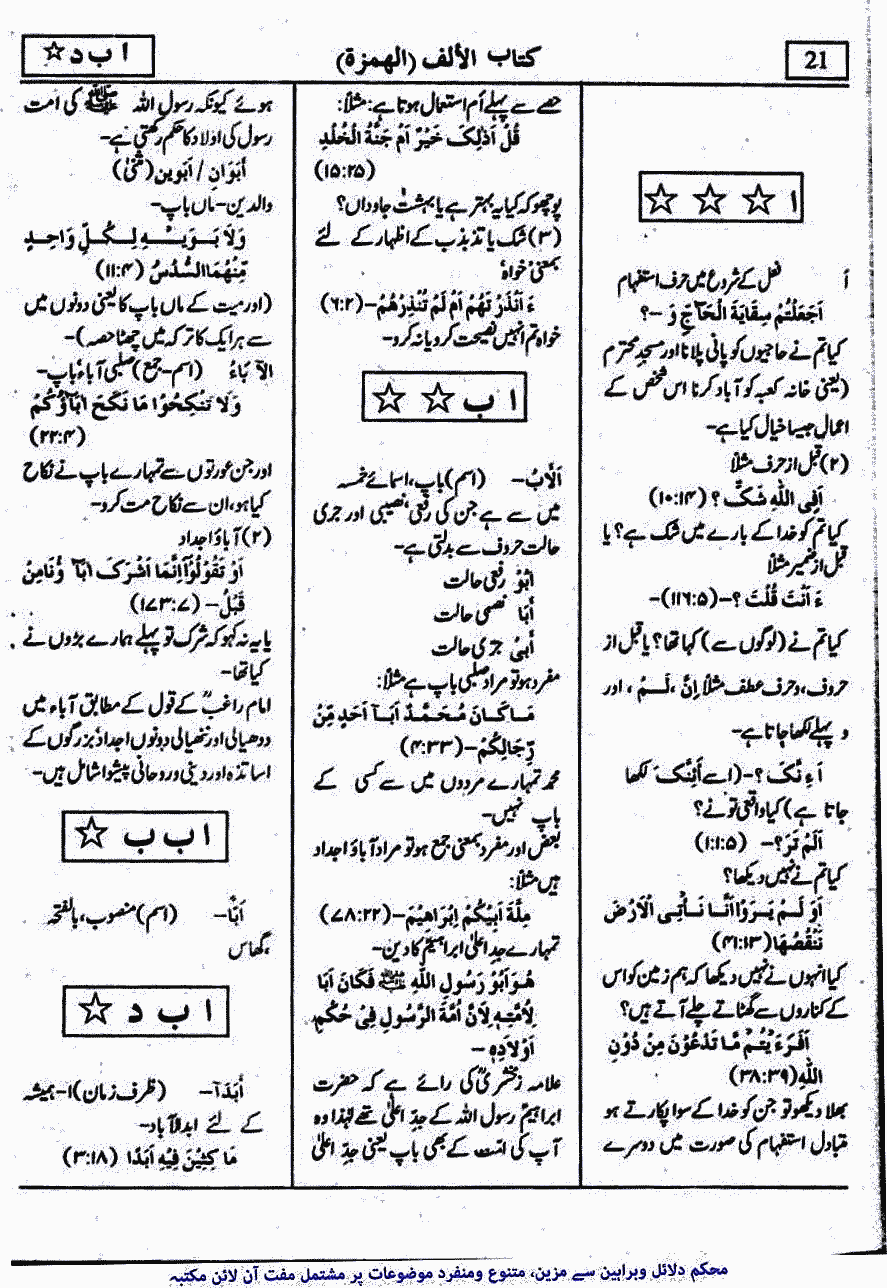 21
کتاب الألف (الهمزة)
ا ب د ☆
ا ☆ ☆ ☆
أ فعل کے شروع میں حرف استفہام
اَجَعَلْتُمْ سِقَايَةَ الْحَآجِّ وَ –؟
کیا تم نے حاجیوں کو پانی پلانا اور مسجد محترم
(یعنی خانہ کعبہ کو آباد کرنا اس شخص کے
اعمال جیسا خیال کیا ہے–
(۲) قبل از حرف مثلاً
اَفِی اللّٰهِ شَکٌّ ؟ (۱۰:۱۴)
کیا تم کو خدا کے بارے میں شک ہے؟ یا
قبل از ضمیر مثلاً
ءَ اَنْتَ قُلْتَ ؟–(۱۱۶:۵)–
کیا تم نے (لوگوں سے) کہا تھا؟ یا قبل از
حروف، وحرف عطف مثلاً اِنَّ ،لَمْ ، اور
و پہلے لکھا جاتا ہے–
أَءِ نَّکَ ؟–(اسے أَئِنَّکَ لکھا
جاتا ہے) کیا واقعی تو نے؟
اَلَمْ تَرَ؟– (۱:۱:۵)
کیا تم نے نہیں دیکھا؟
اَوَ لَمْ يَرَوْا اَنَّا نَأْتِی الْاَرْضَ
نَنْقُصُهَا (۴۱:۱۳)
کیا انہوں نے نہیں دیکھا کہ ہم زمین کو اس
کے کناروں سے گھٹاتے چلے آتے ہیں؟
اَفَرَءَيْتُمْ مَّا تَدْعُوْنَ مِنْ دُوْنِ
اللّٰهِ (۳۸:۳۹)
بھلا دیکھو تو جن کو خدا کے سوا پکارتے ہو
متبادل استفہام کی صورت میں دوسرے
حصے سے پہلے اَم استعمال ہوتا ہے: مثلاً:
قُلْ اَذٰلِکَ خَيْرٌ اَمْ جَنَّةُ الْخُلْدِ
(۱۵:۲۵)
پوچھو کہ کیا یہ بہتر ہے یا بہشت جاوداں؟
(۳) شک یا تذبذب کے اظہار کے لئے
بمعنیٰ خواہ
ءَ اَنْذَرْتَهُمْ اَمْ لَمْ تُنْذِرْهُمْ–(۶:۲)
خواہ تم انہیں نصیحت کرو یا نہ کرو–
ا ب ☆ ☆
اَلْأَبُ– (اسم) باپ، اسمائے خمسہ
میں سے ہے جن کی رفعی، نصبی اور جری
حالت حروف سے بدلتی ہے–
أَبُوْ رفعی حالت
أَبَا نصبی حالت
أَبِیْ جری حالت
مفرد ہو تو مراد صلبی باپ ہے مثلاً:
مَا کَانَ مُحَمَّدٌ اَبَآ اَحَدٍ مِّنْ
رِّجَالِکُمْ–(۴:۳۳)
محمد تمہارے مردوں میں سے کسی کے
باپ نہیں–
بعض اور مفرد بمعنی جمع ہو تو مراد آباؤ اجداد
ہیں مثلاً:
مِلَّةَ اَبِيْکُمْ اِبْرَاهِيْمَ–(۷۸:۲۲)
تمہارے جد اعلیٰ ابراہیمؑ کا دین–
هُوَ اَبُوْ رَسُوْلِ اللّٰهِ ﷺ فَکَانَ اَبًا
لِاُمَّتِهٖ لِاَنَّ اُمَّةَ الرَّسُوْلِ فِیْ حُکْمِ
اَوْلَادِهٖ –
علامہ زمخشریؒ کی رائے ہے کہ حضرت
ابراہیمؑ رسول اللہ کے جدّ اعلیٰ تھے لہٰذا وہ
آپ کی امت کے بھی باپ یعنی جدّ اعلیٰ
ہوئے کیونکہ رسول اللہ ﷺ کی امت
رسول کی اولاد کا حکم رکھتی ہے–
أَبَوَانِ / أَبَوين (مثنیٰ)
والدین– ماں باپ–
وَلَا بَوَيْهِ لِکُلِّ وَاحِدٍ
مِّنْهُمَا السُّدُسُ (۱۱:۴)
(اور میت کے ماں باپ کا یعنی دونوں میں
سے ہر ایک کا ترکہ میں چھٹا حصہ)–
الآبَاءُ (اسم–جمع) صلبی آباءُ باپ–
وَلَا تَنْکِحُوْا مَا نَکَحَ اٰبَآؤُکُمْ
(۲۲:۴)
اور جن عورتوں سے تمہارے باپ نے نکاح
کیا ہو، ان سے نکاح مت کرو–
(۲) آباؤ اجداد
اَوْ تَقُوْلُوْٓا اِنَّمَا اَشْرَکَ اٰبَآؤُنَا مِنْ
قَبْلُ– (۱۷۳:۷)
یا یہ نہ کہو کہ شرک تو پہلے ہمارے بڑوں نے
کیا تھا–
امام راغبؒ کے قول کے مطابق آباء میں
ددھیالی اور ننھیالی دونوں اجداد بزرگوں کے
اساتذہ اور دینی و روحانی پیشوا شامل ہیں–
ا ب ب ☆
أَبًّا– (اسم) منصوب، بالفتحہ
،گھاس
ا ب د ☆
أَبَدًا– (ظرف زمان) ا–ہمیشہ
کے لئے ابدالآباد–
مَا کِثِيْنَ فِيْهِ اَبَدًا (۳:۱۸)
محکم دلائل وبراہین سے مزین، متنوع ومنفرد موضوعات پر مشتمل مفت آن لائن مکتبہ